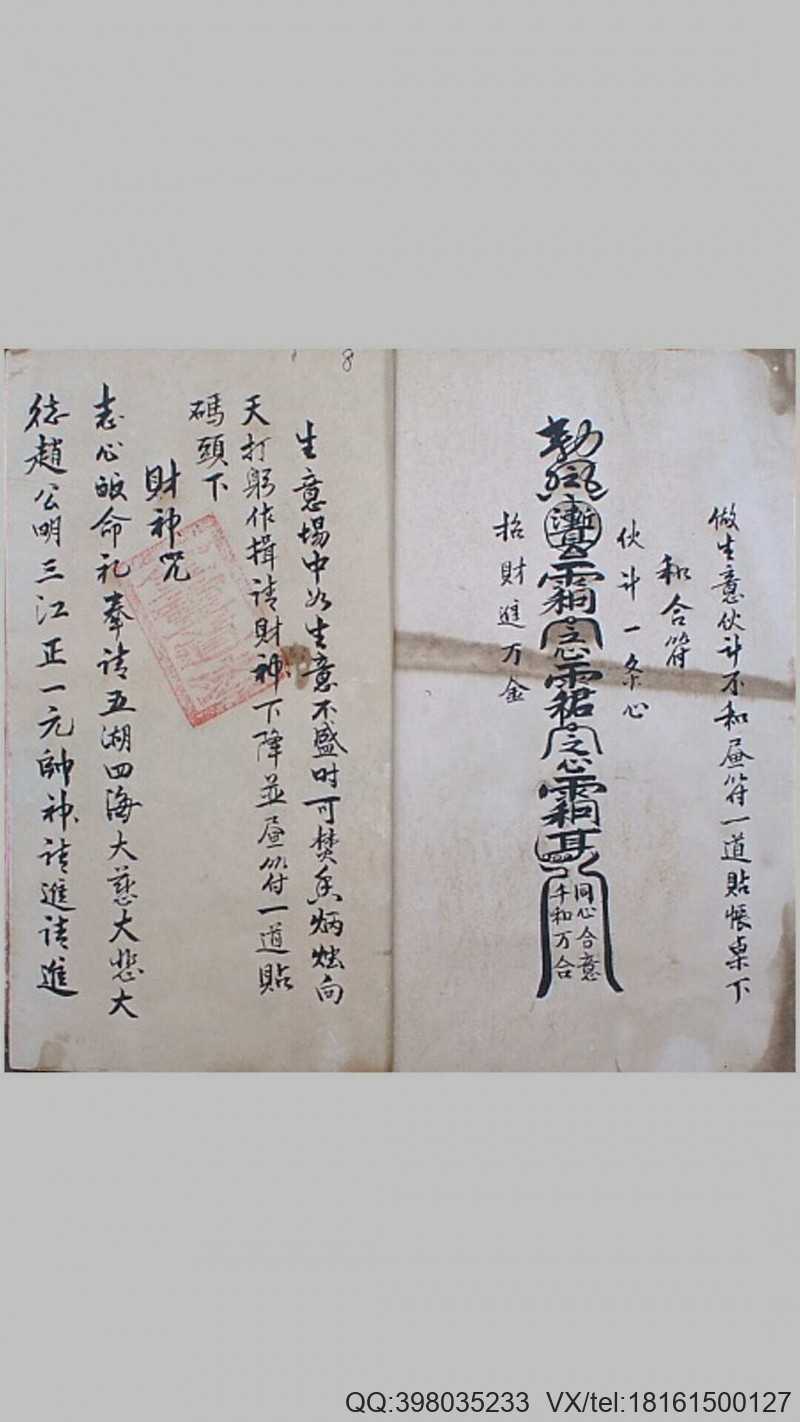 做生意伙计不和画符一道貼帳桌下
和合符
伙计一条心
勅
漸
霜
心
霜
心
霜
同心合意
千和万合
招財進万金
8
生意場中如生意不盛时可焚香炳烛向
天打躬作揖请財神下降並画符一道貼
碼頭下
財神咒
志心皈命礼奉请五湖四海大慈大悲大
德趙公明三江正一元帥神请進请進
QQ:398035233 VX/tel:18161500127